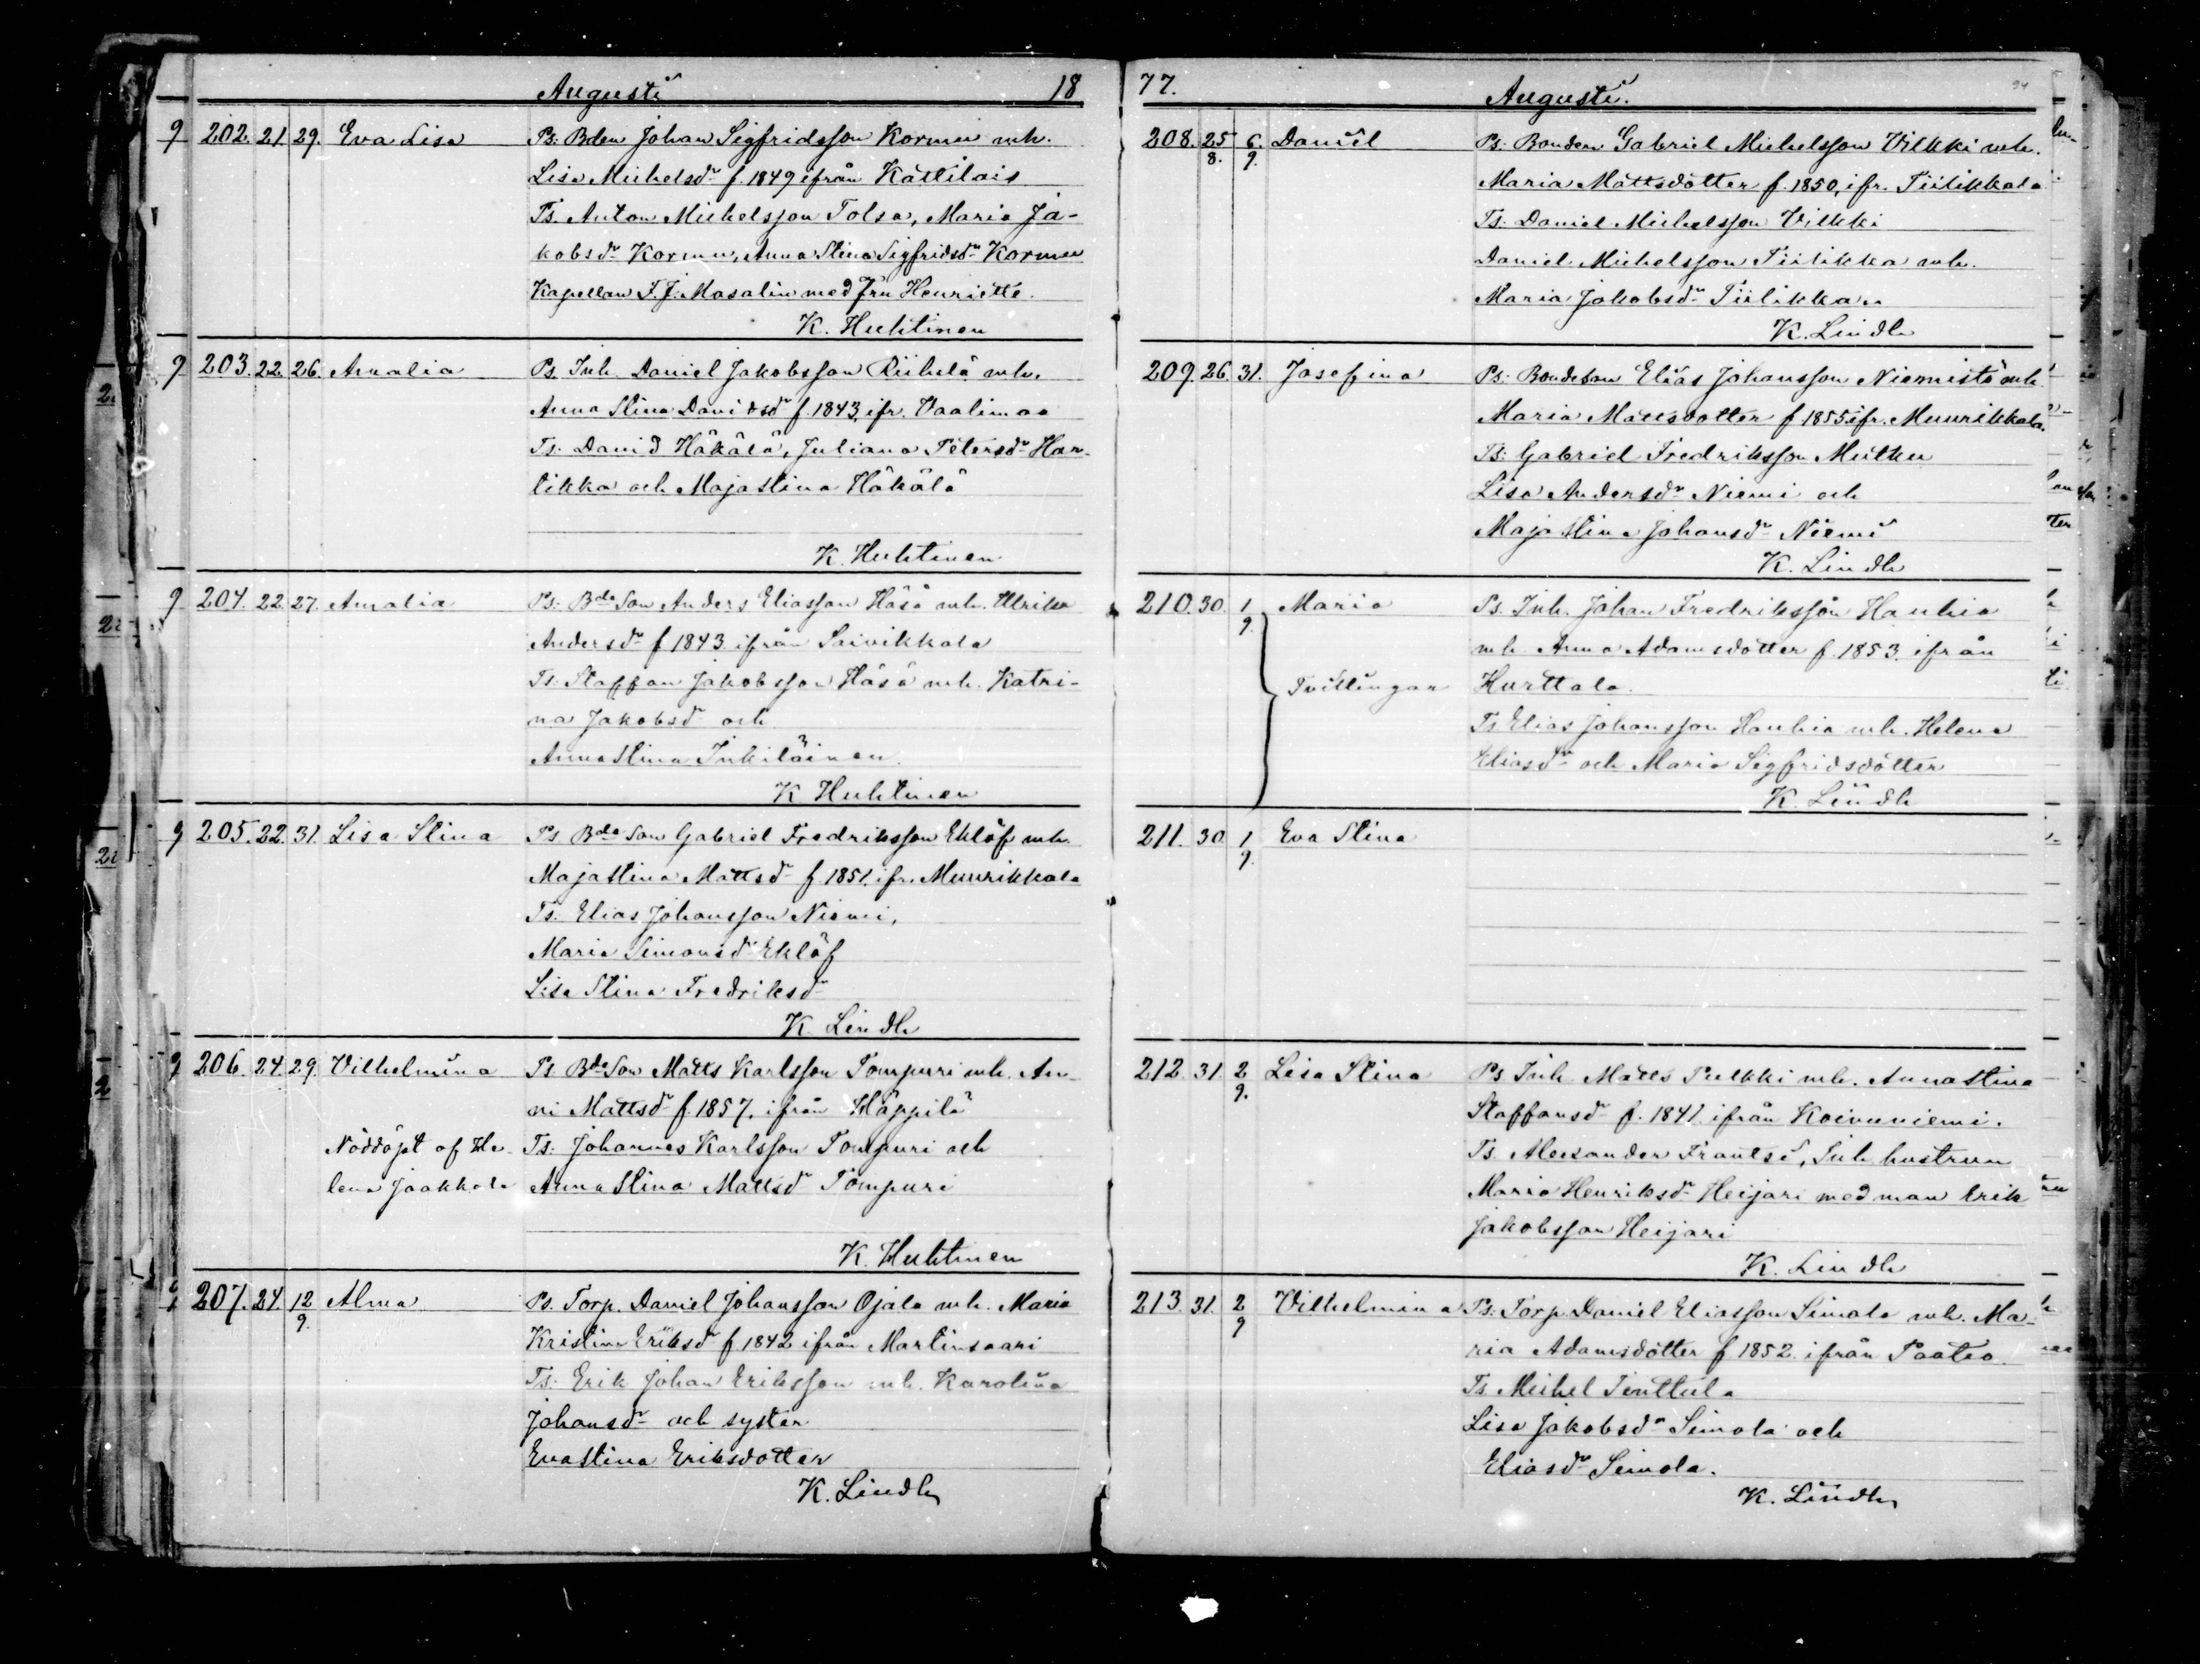 Augusti 18
202. 21. 29. Eva Lisa Ps. Bden Johan Sigfridsson Kormu mh.
Lisa Michelsdr f. 1849 ifrån Kattilais
Ts. Anton Michelsson Tolsa, Maria Ja-
kobsdr Kormu, Anna Stina Sigfridsdr Kormu
Kapellan F. J. Masalin med fru Henriette.
K. Huhtinen
203. 22. 26. Amalia Ps. Inh. Daniel Jakobsson Riihelä mh.
Anna Stina Davidsdr f. 1843, ifr. Vaalimaa
Ts. David Häkälä, Juliana Petersdr Har-
likka och Maja Stina Häkälä
K. Huhtinen
204. 22. 27. Amalia Ps. Bde Son Anders Eliasson Häsä mh. Ulrika
Andersdr f 1843. ifrån Saivikkala
Ts. Staffan Jakobsson Häsä mh. Katri-
na Jakobsdr och
Anna Stina Inkiläinen.
K Huhtinen
205. 22. 31. Lisa Stina Ps. Bde Son Gabriel Fredriksson Eklöf mh.
Maja Stina Mattsdr f. 1851. ifr. Muurikkala
Ts. Elias Johansson Niemi,
Maria Simonsdr Eklöf
Lisa Stina Fredriksdr
K. Lindh
206. 24. 29. Vilhelmina Ps. Bde Son Matts Karlsson Pompuri mh. An-
ni Mattsdr f. 1857. ifrån Häppilä
Nöddöpt af He- Ts. Johannes Karlsson Pompuri och
lena Jaakkola Anna Stina Mattsdr Pompuri
K. Huhtinen
207. 24. 12 Alma Ps. Torp. Daniel Johansson Ojala mh. Maria
9. Kristina Eriksdr f. 1842 ifrån Martinsaari
Ts. Erik Johan Eriksson mh. Karolina
Johansdr och syster
Eva Stina Eriksdotter
K. Lindh
77. Augusti. 94
208. 25 6. Daniel Ps. Bonden Gabriel Michelsson Vilkki mh.
8. 9. Maria Mattsdotter f. 1850, ifr. Tiilikkala
Ts. Daniel Michelsson Vilkki
Daniel Michelsson Tiilikka mh.
Maria Jakobsdr Tiilikka
K. Lindh
209. 26. 31. Josefina Ps. Bondeson Elias Johansson Niemistö mh
Maria Mattsdotter f 1855 ifr. Muurikkala.
Ts. Gabriel Fredriksson Mutku
Lisa Andersdr Niemi och
Maja Stina Johansdr Niemi
K. Lindh
210. 30. 1 Maria Ps. Inh. Johan Fredriksson Hauhia
9. mh. Anna Adamsdotter f. 1853. ifrån
Tvillingar Hurttala.
Ts Elias Johansson Hauhia mh. Helena
Eliasdr och Maria Sigfridsdotter
K. Lindh
211. 30. 1 Eva Stina
9.
212. 31. 2 Lisa Stina Ps. Inh. Matts Pulkki mh. Anna Stina
9. Staffansdr f. 1841. ifrån Koivuniemi.
Ts. Alexander Frantsi, Inh. hustrun
Maria Henriksdr Heijari med man Erik
Jakobsson Heijari
K. Lindh
213. 31. 2 Vilhelmina Ps. Torp. Daniel Eliasson Simola mh. Ma-
9 ria Adamsdotter f 1852. ifrån Paatio.
Ts. Michel Penttilä
Lisa Jakobsdr Simola och
Eliasdr Simola.
K. Lindh